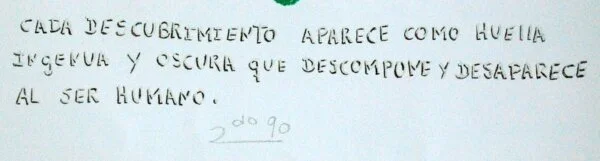 CADA DESCUBRIMIENTO APARECE COMO HUELLA
INGENUA Y OSCURA QUE DESCOMPONE Y DESAPARECE
AL SER HUMANO.
2do 90